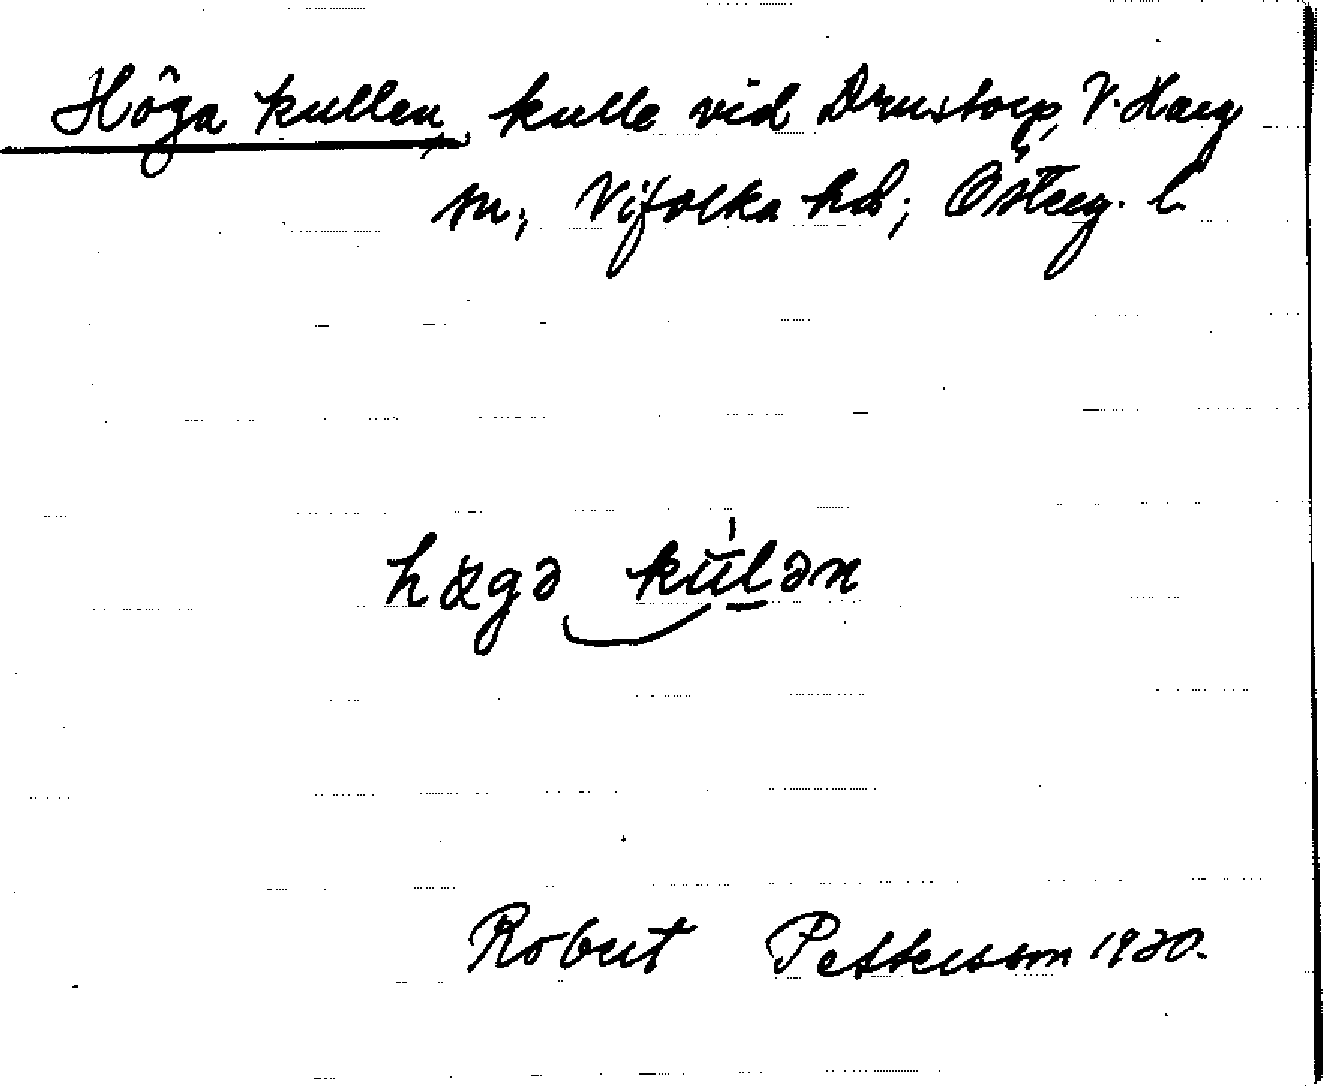 Höga kullen, kulle vid Drustorp, V. Harg
sn, Vifolka hd; Österg. l.
høgə kúlən
Robert Pettersson 1930.